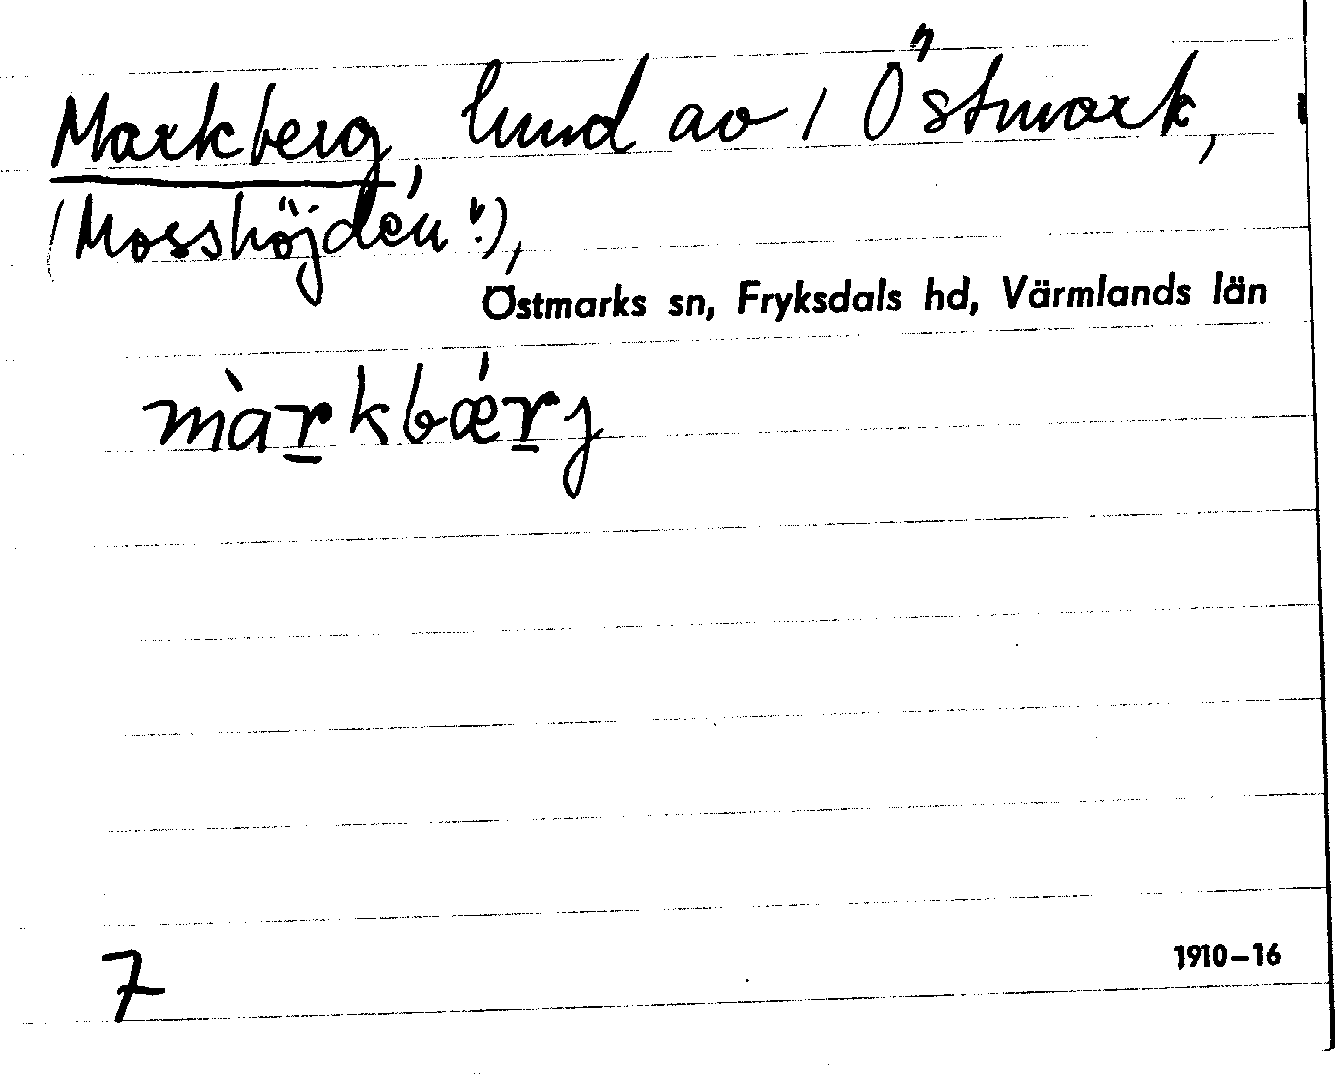 Markberg, lund av i Östmark,
(Mosshöjden"),
Östmarks sn, Fryksdals hd, Värmlands län
màr̲kbǽr̲j
7
1910–16